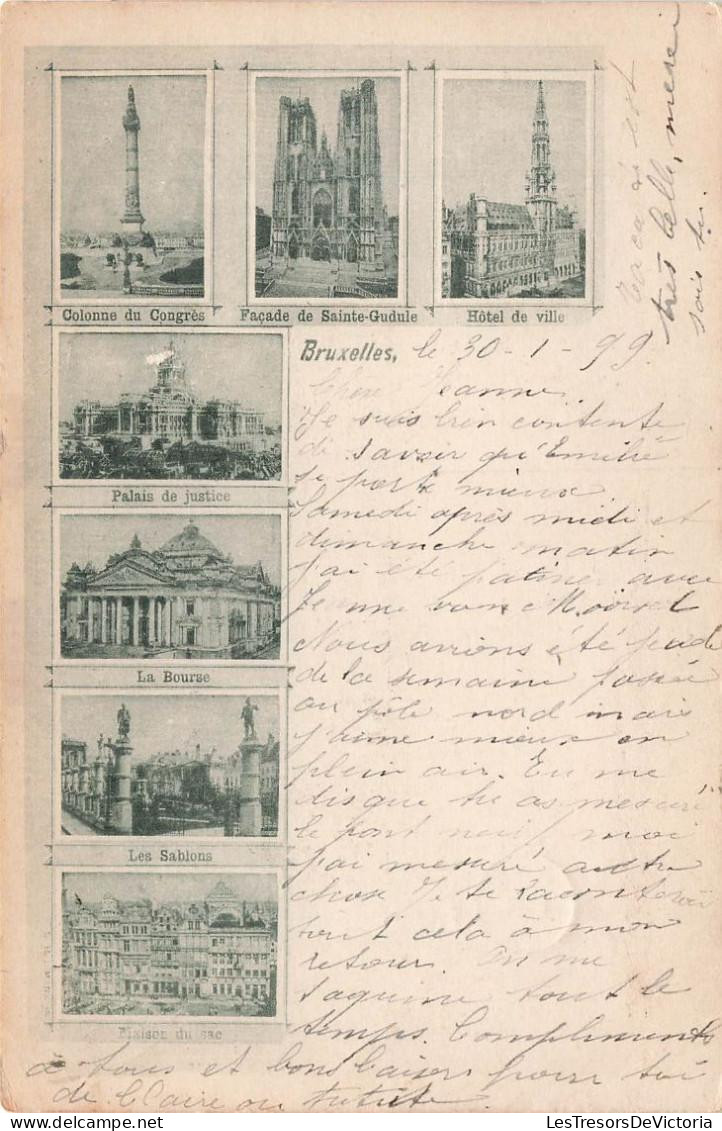 Colonne du Congrès
Façade de Sainte-Gudule
Hôtel de ville
Palais de justice
La Bourse
Les Sablons
Maison du sac
Bruxelles, le 30-1-99.
Chère Jeanne.
Je suis bien contente
de savoir qu'Emilie
se porte mieux.
Samedi après midi et
dimanche matin
j'ai été patiner avec
Nous avions été
de la semaine passée
au pôle nord mais
j'aime mieux en
plein air. Tu me
dis que tu as mesuré
le pont neuf, moi
j'ai mesuré autre
chose. Je te raconterai
tout cela à mon
retour. On me
taquine tout le
temps. Compliments
à tous et bons baisers pour toi
de Claire ou
est
très belle, merci
LesTresorsDeVictoria
http://www.delcampe.net
LesTresorsDeVictoria